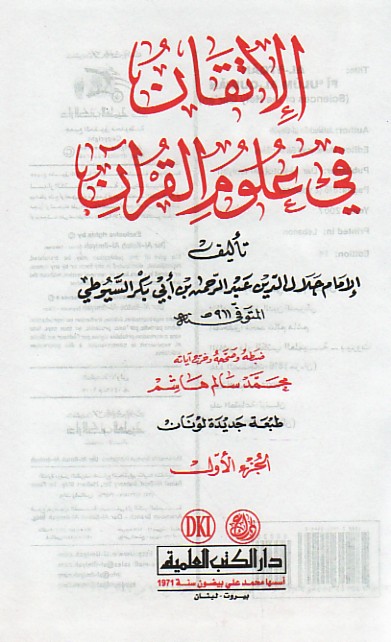 الإتقان
في علوم القرآن
تأليف
الإمام جلال الدين عبد الرحمن بن أبي بكر السيوطي
المتوفى ٩١١ هـ
ضبطه وصححه وخرج آياته
محمد سالم هاشم
طبعة جديدة لونان
الجزء الأول
DKI
دار الكتب العلمية
أسسها محمد علي بيضون سنة 1971
بيروت - لبنان